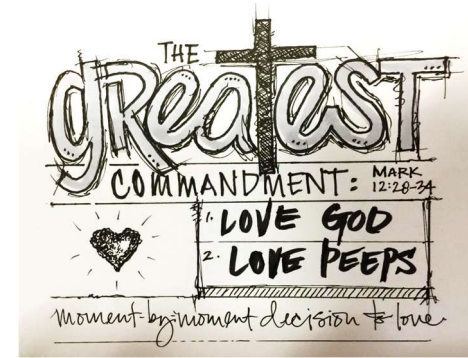 THE
greatest
COMMANDMENT: MARK 12:28-34
1. LOVE GOD
2. LOVE PEEPS
moment-by-moment decision to love.